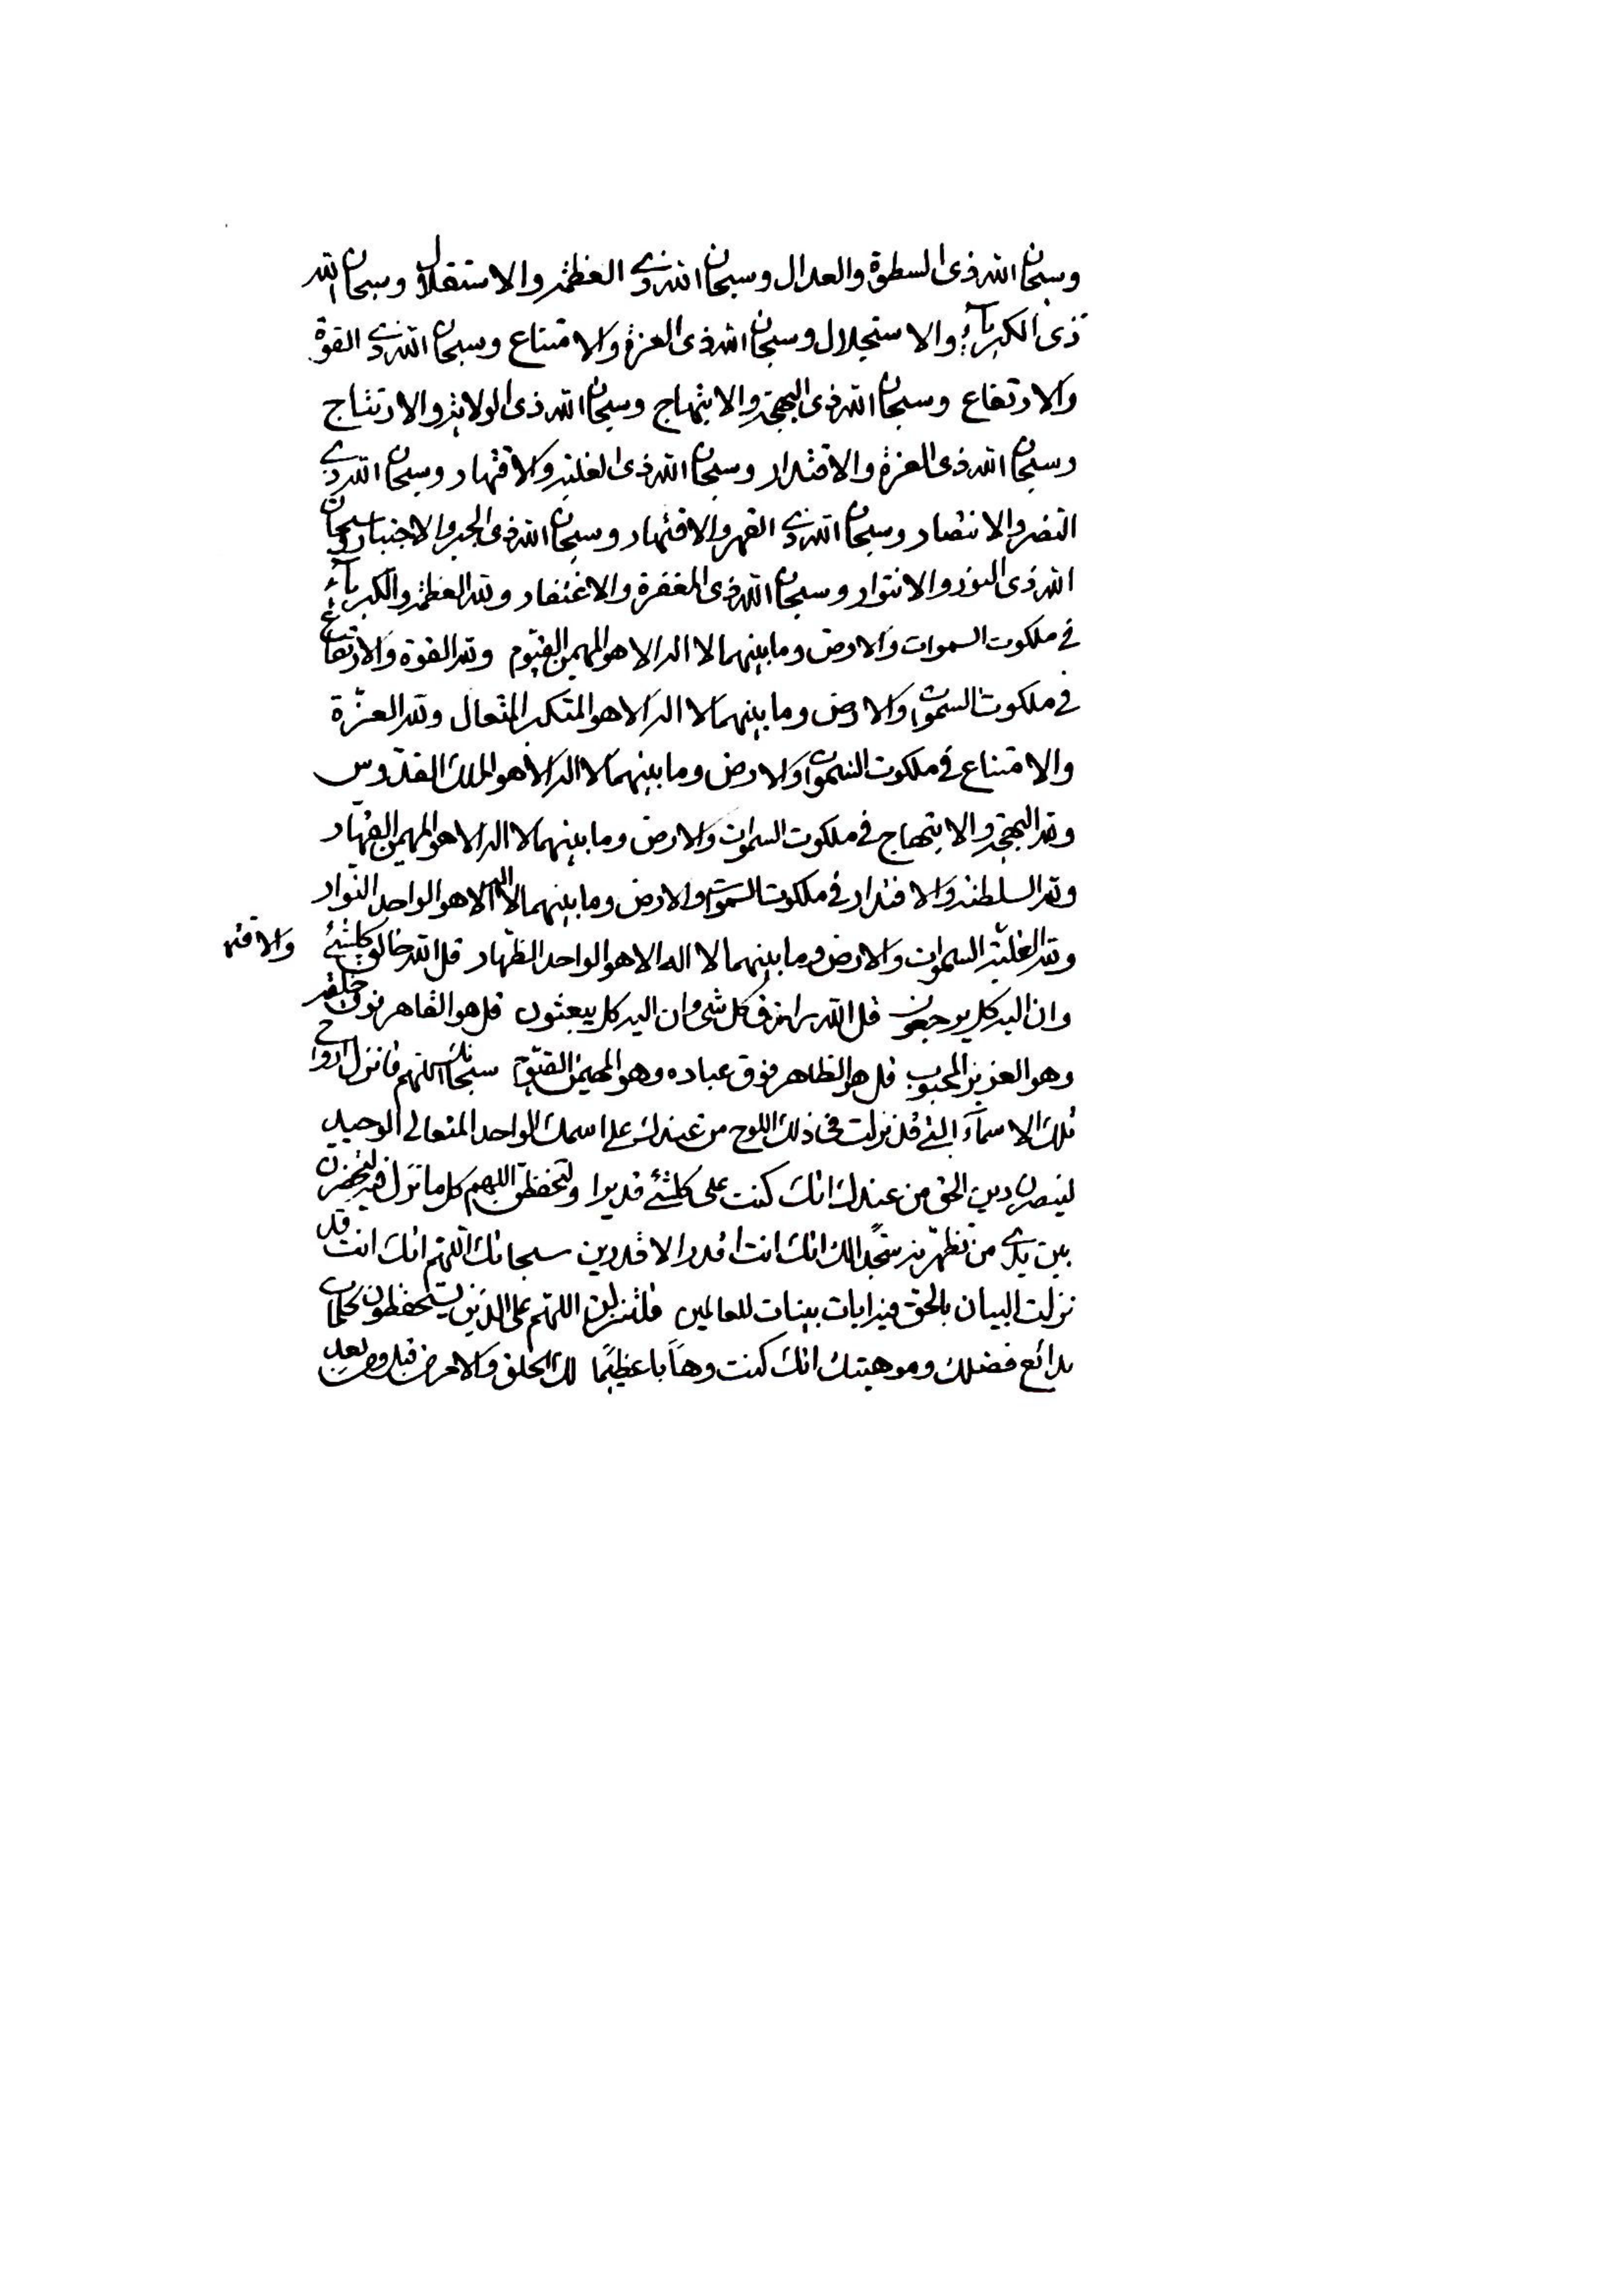 وسبحان الله ذى السطوة والعدال وسبحان الله ذي العظمة والاستقلال وسبحان الله
ذى الكبرياء والاستجلال وسبحان الله ذى العزة والامتناع وسبحان الله ذي القوة
والارتفاع وسبحان الله ذى البهجة والابتهاج وسبحان الله ذى الولاية والارتتاج
وسبحان الله ذى العزة والاقتدار وسبحان الله ذى الغلبة والاقتهار وسبحان الله ذي
النصر والانتصار وسبحان الله ذي القهر والاقتهار وسبحان الله ذى الجبر والاجتبار وسبحان
الله ذى النور والانتوار وسبحان الله ذى المغفرة والاغتفار ولله العظمة والكبرياء
في ملكوت السموات والارض وما بينهما لا اله الا هو المهيمن القيوم ولله القوة والارتفاع
في ملكوت السموات والارض وما بينهما لا اله الا هو المتكبر المتعال ولله العزّة
والامتناع في ملكوت السموات والارض وما بينهما لا اله الا هو الملك القدّوس
ولله البهجة والابتهاج في ملكوت السموات والارض وما بينهما لا اله الا هو المهيمن القهّار
ولله السلطنة والاقتدار في ملكوت السموات والارض وما بينهما لا اله الا هو الواحد النوّار
ولله الغلبة السموات والارض وما بينهما لا اله الا هو الواحد الظهار قل الله خالق كلشئ والاقتها
وان اليه كل يرجعون قل الله كل شى وان اليه كل يبعثون قل هو القاهر فوق خلقه
وهو العزيز المحبوب قل هو الظاهر فوق عباده وهو المهيمن القيّوم سبحانك اللهم فانزل ارواح
تلك الاسمآء التي قد نزلت في ذلك اللوح من عندك على اسمك الواحد المتعالى الوحيد
لينصرن دين الحق من عندك انك كنت على كلشئ قديرا ولتحفظن اللهم كل ما نزل فيه لتحضرن
بين يدي من تظهرنه سجّدا لك انك انت اقدر الاقدرين سبحانك اللهم انك انت قد
نزلت البيان بالحق فيه ايات بينات للعالمين فلتنزلن اللهم على الذين يستحفظون كلمات
بدائع فضلك وموهبتك انك كنت وهّابا عظيما لك الخلق والامر من قبل ومن بعد